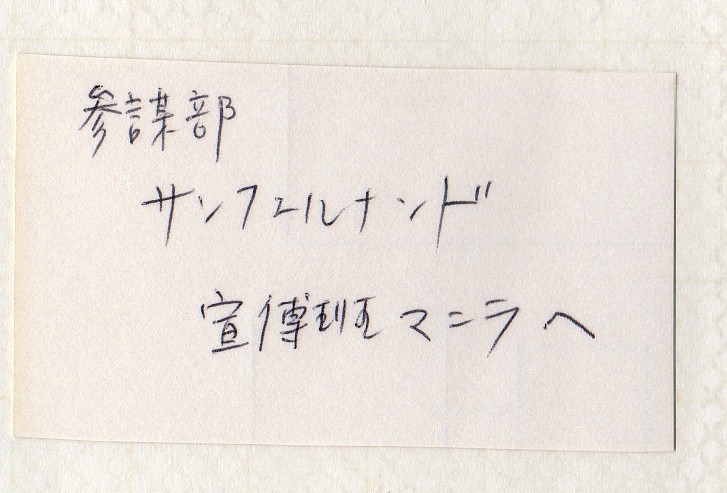 参謀部
サンフエルナンド
宣傳班マニラへ